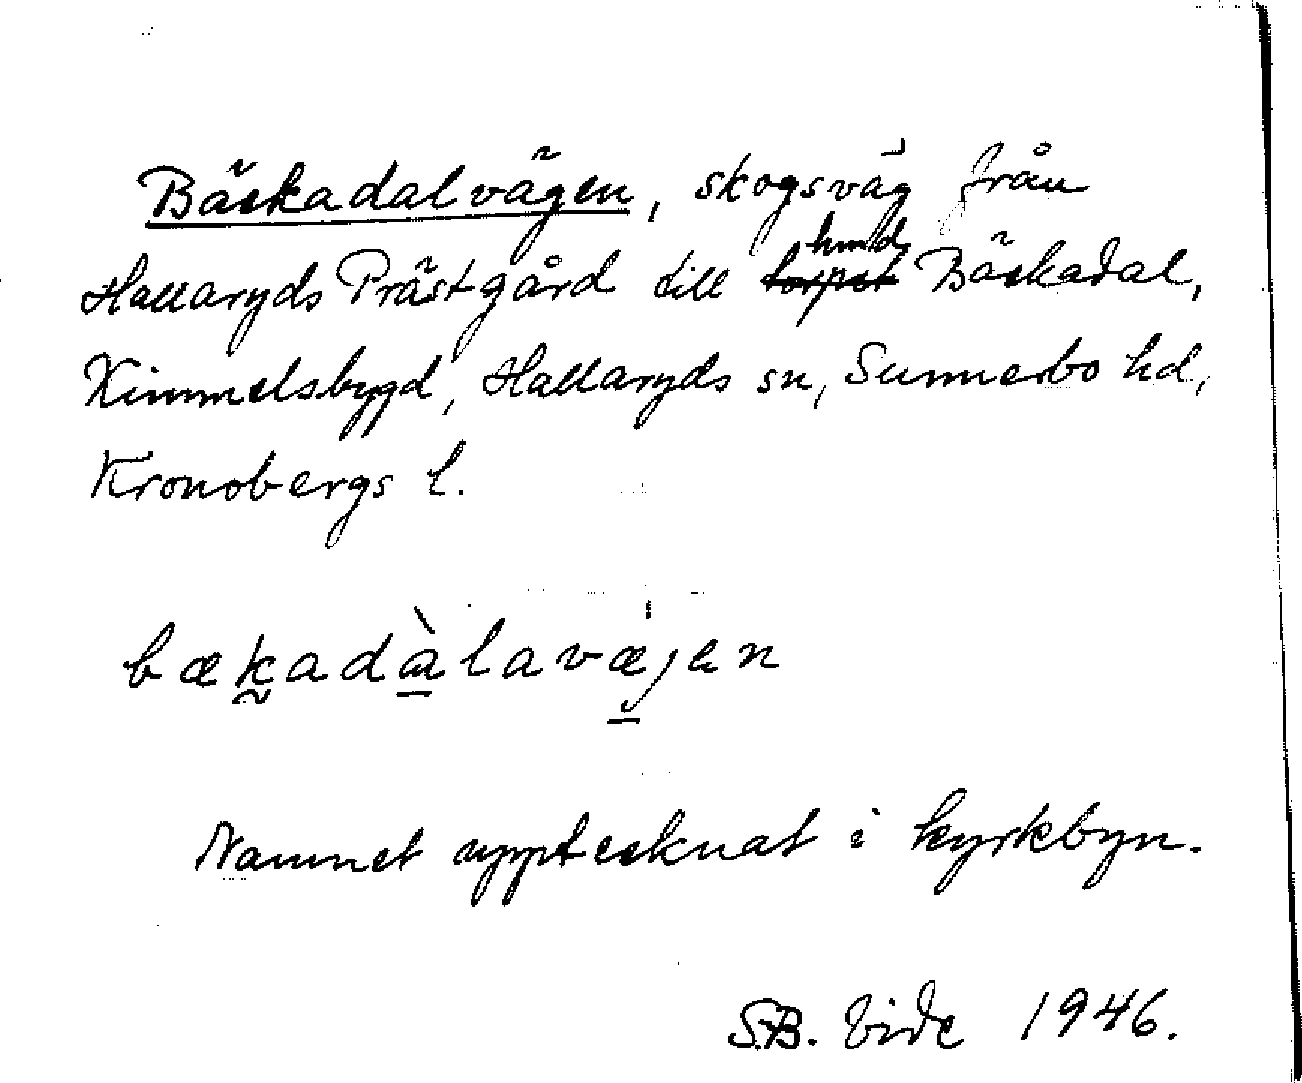 Bäckadalvägen, skogsväg från
Hallaryds Prästgård till hmd Bäckadal,
Kimmelsbygd, Hallaryds sn, Sunnerbo hd,
Kronobergs l.
bækadàlavæjen
Namnet upptecknat i kyrkbyn.
S.B. Vide 1946.